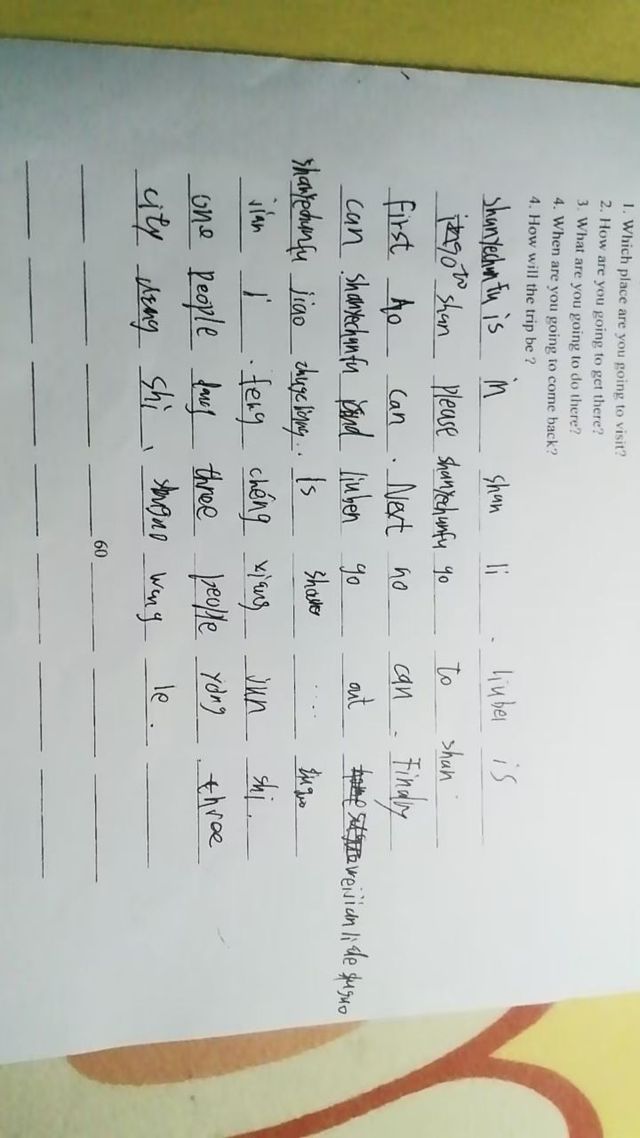 1. Which place are you going to visit?
2. How are you going to get there?
3. What are you going to do there?
4. When are you going to come back?
4. How will the trip be ?
shanyechunfu is in shan li . liubei is
go to shan please shanyechunfu go to shan.
first no can . Next no can . Finaly
can shanyechunfu liuben go out weijianli de shuguo
shanyechunfu jiao zhugeliang.. Is shao ..... shuguo
jian i . feng chéng xiang jun shi.
one people dang three people yong three
city shi , shuguo wang le .
60